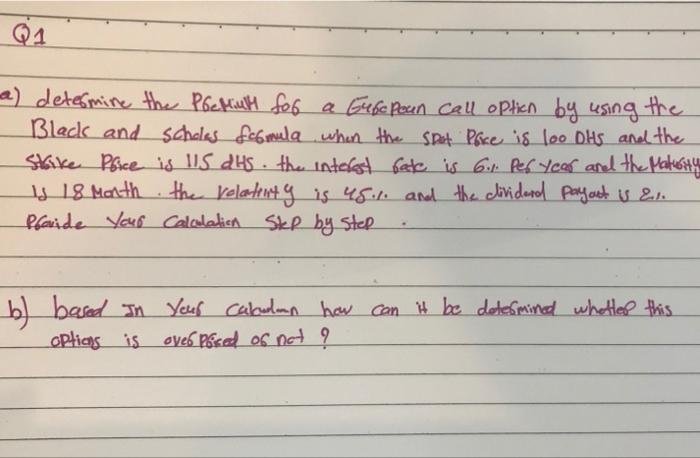 Q1
a) determine the Premium for a European call option by using the
Black and scholes formula when the spot Price is 100 DHS and the
Strike Price is 115 dHS. the interest rate is 6% Per year and the Maturity
is 18 Month. the volatility is 45% and the dividend payout is 2%.
Provide Your Calculation Step by Step.
b) based In Your how can it be determined whether this
options is over priced or not ?